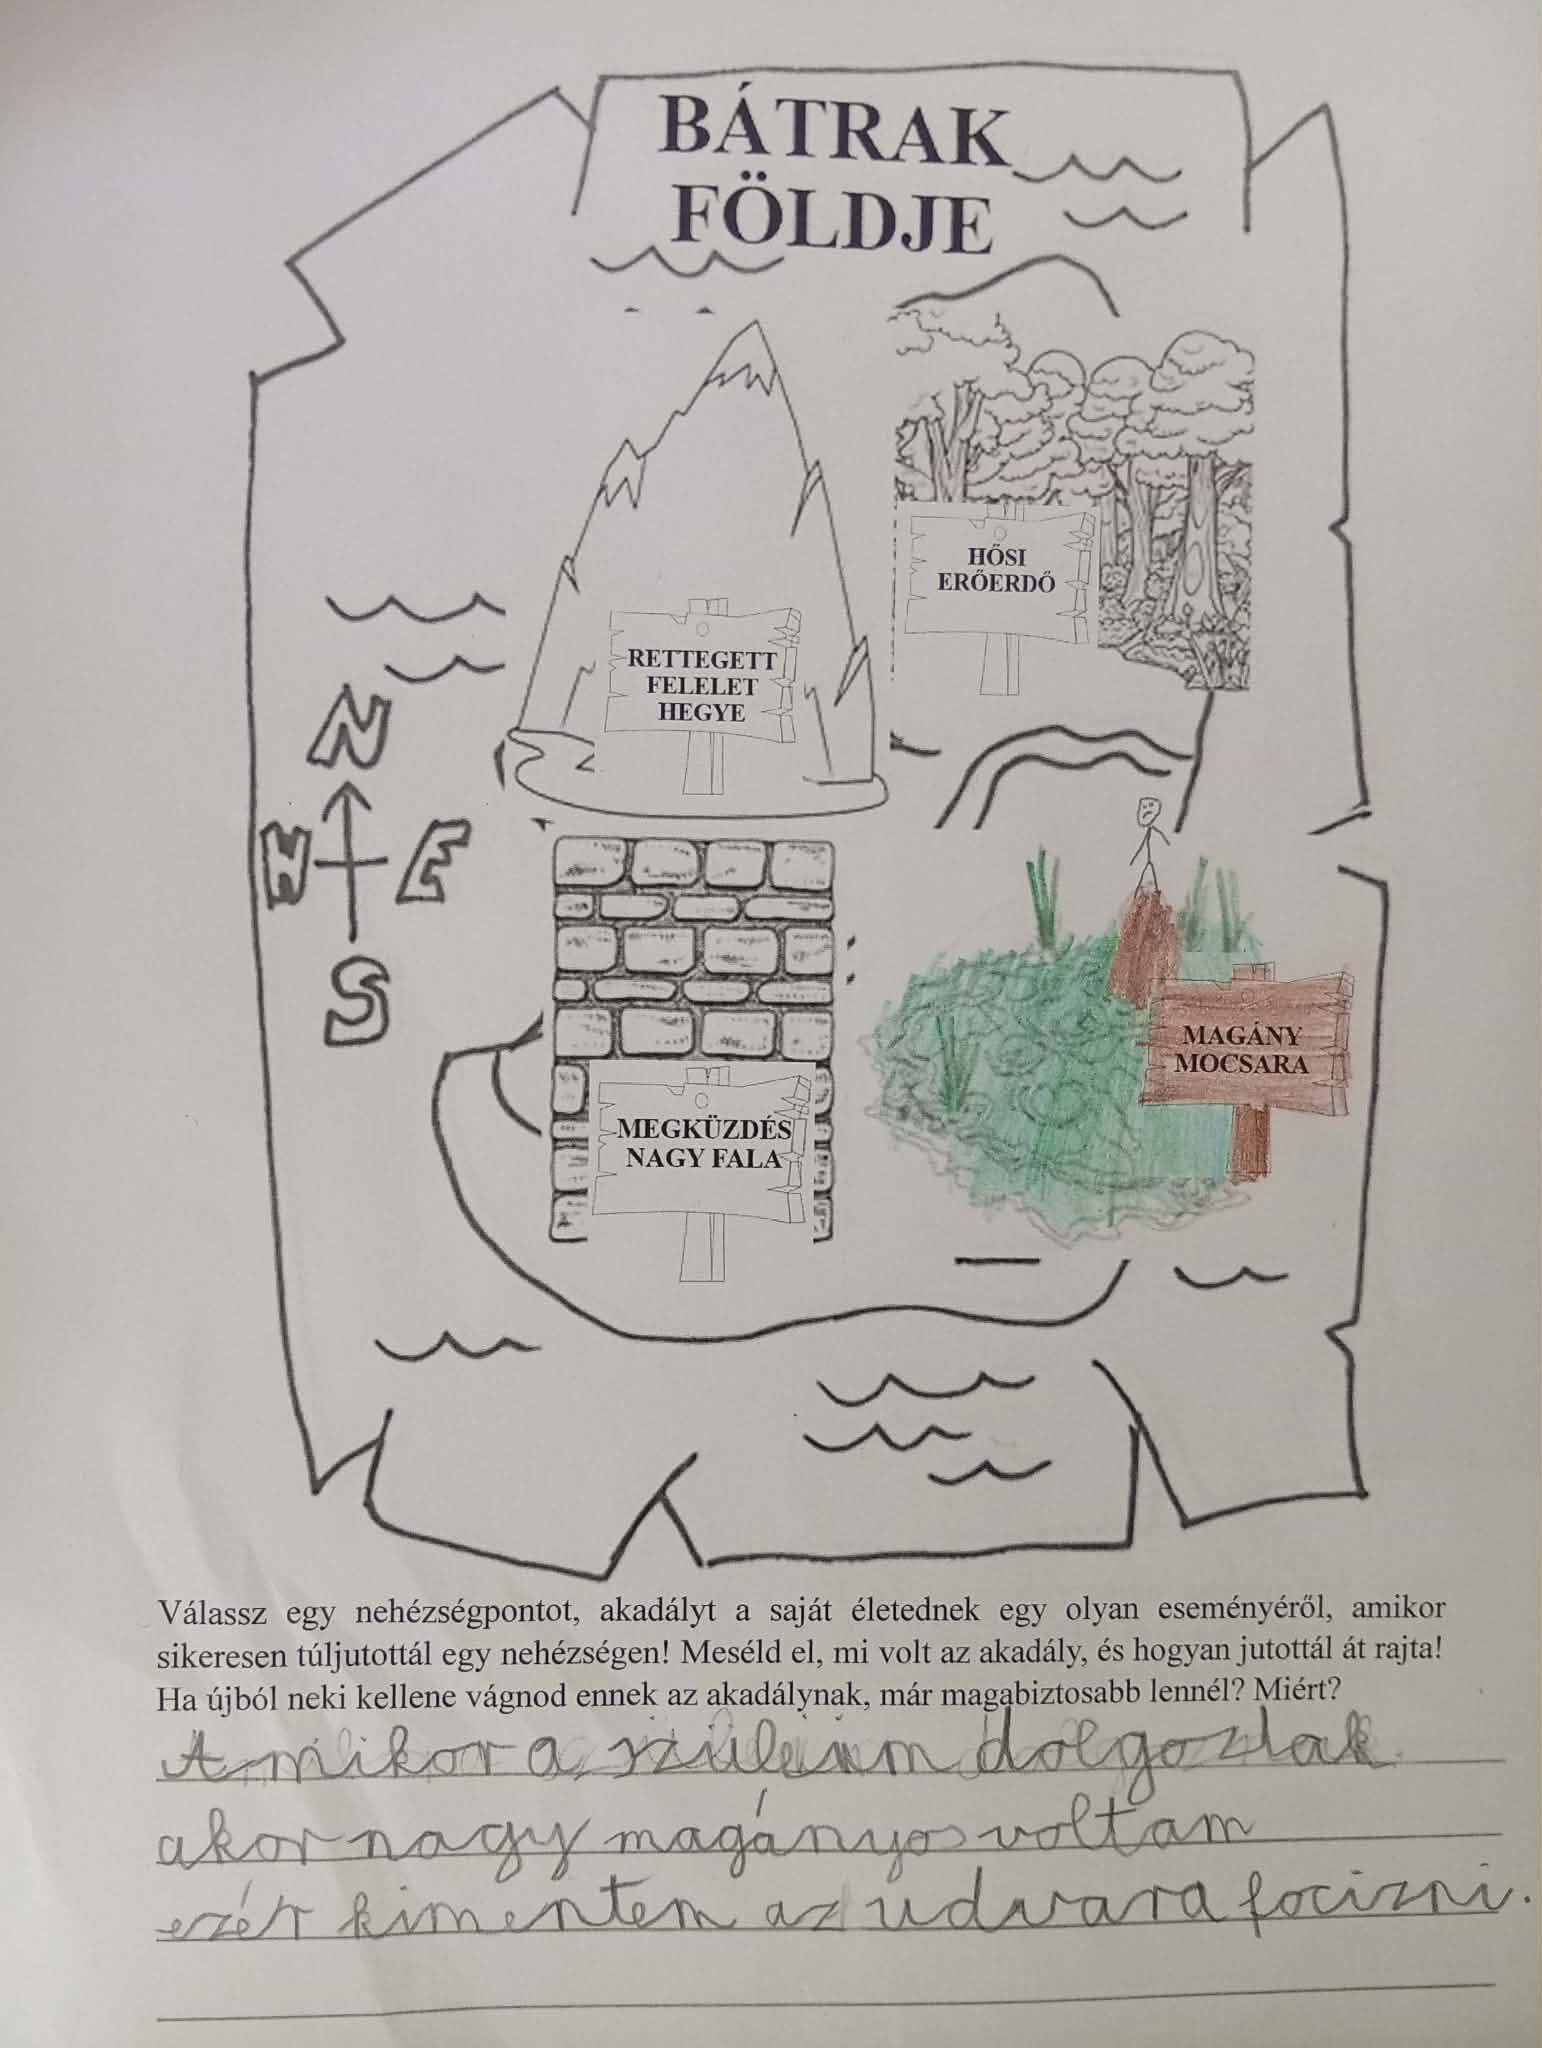 BÁTRAK
FÖLDJE
HŐSI
ERŐERDŐ
RETTEGETT
FELELET
HEGYE
N
W
E
S
MAGÁNY
MOCSARA
MEGKÜZDÉS
NAGY FALA
Válassz egy nehézségpontot, akadályt a saját életednek egy olyan eseményéről, amikor
sikeresen túljutottál egy nehézségen! Meséld el, mi volt az akadály, és hogyan jutottál át rajta!
Ha újból neki kellene vágnod ennek az akadálynak, már magabiztosabb lennél? Miért?
Amikor a szüleim dolgoztak
akor nagy magányos voltam
ezért kimentem az udvara focizni.